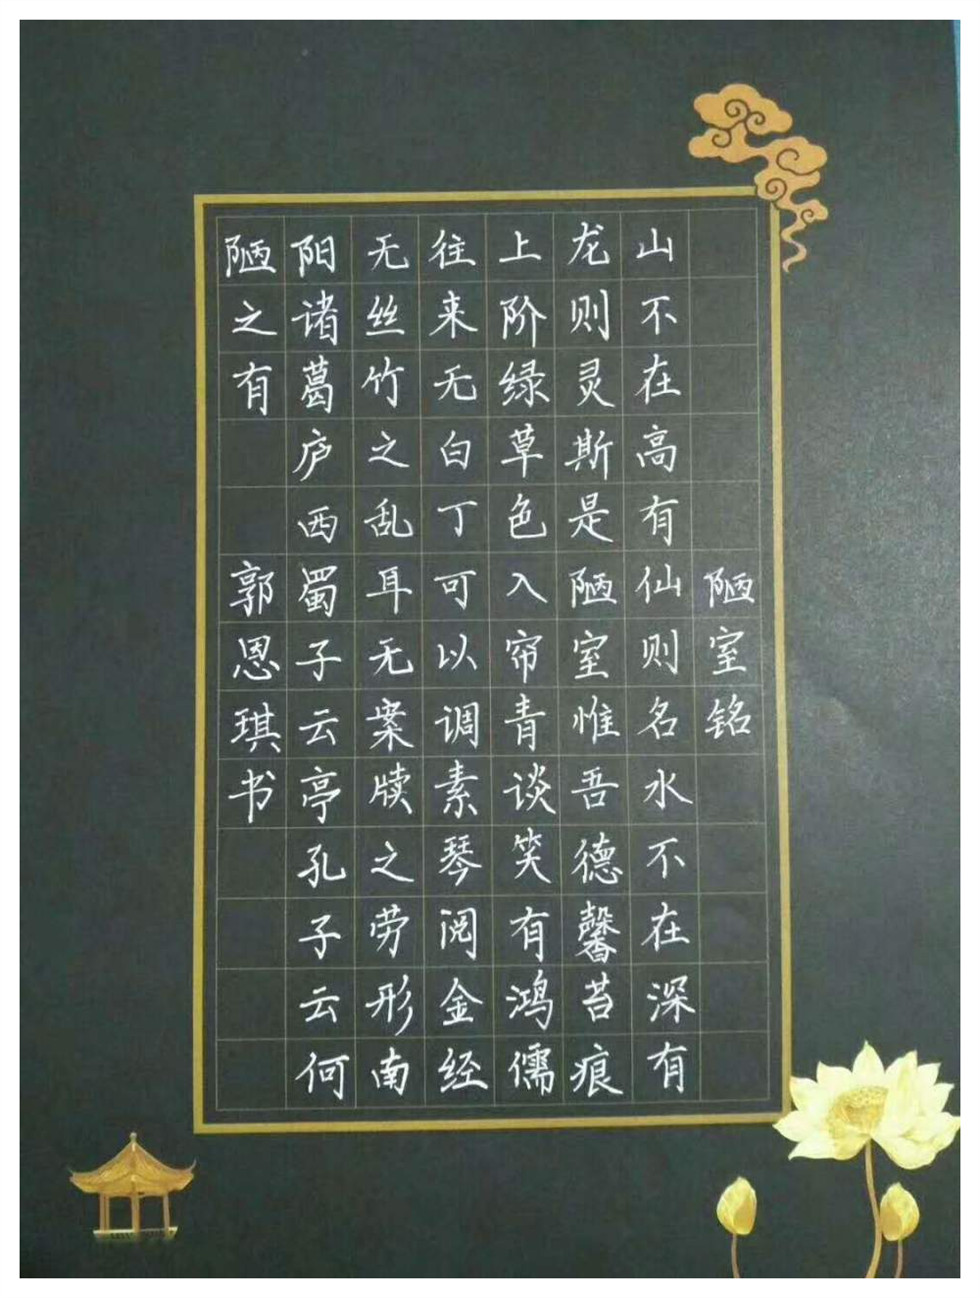 陋室铭
山不在高有仙则名水不在深有
龙则灵斯是陋室惟吾德馨苔痕
上阶绿草色入帘青谈笑有鸿儒
往来无白丁可以调素琴阅金经
无丝竹之乱耳无案牍之劳形南
阳诸葛庐西蜀子云亭孔子云何
陋之有
郭恩琪书